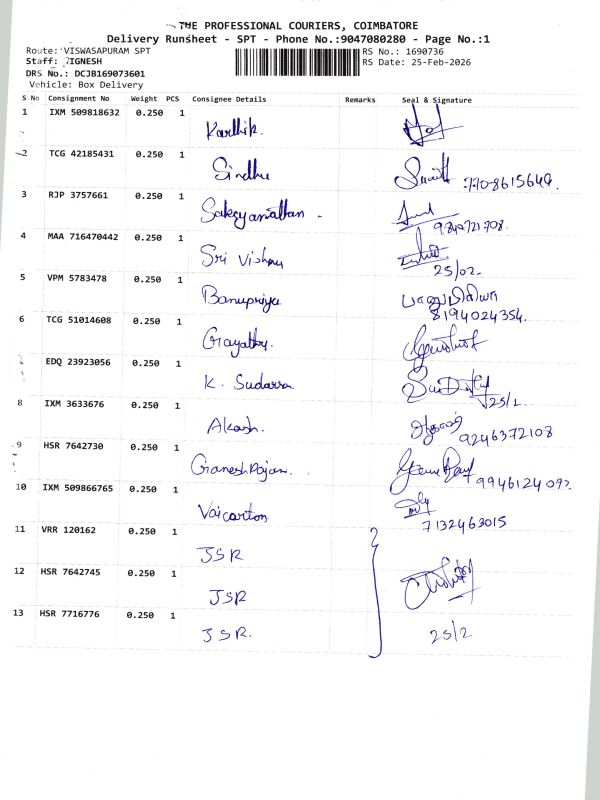 THE PROFESSIONAL COURIERS, COIMBATORE
Delivery Runsheet - SPT - Phone No.:9047080280 - Page No.:1
Route: VISWASAPURAM SPT RS No.: 1690736
Staff: VIGNESH RS Date: 25-Feb-2026
DRS No.: DCJB169073601
Vehicle: Box Delivery
S No Consignment No Weight PCS Consignee Details Remarks Seal & Signature
1 IXM 509818632 0.250 1
Karthik.
2 TCG 42185431 0.250 1
Sindhu
3 RJP 3757661 0.250 1
4 MAA 716470442 0.250 1
Sri Vishnu
25/02.
5 VPM 5783478 0.250 1
Banupriya பானுப்பிரியா
8194024354.
6 TCG 51014608 0.250 1
Gayathry.
EDQ 23923056 0.250 1
K. Sudarsa
25/2.
8 IXM 3633676 0.250 1
Akash.
9246372108
9 HSR 7642730 0.250 1
GaneshRajan.
10 IXM 509866765 0.250 1
7132463015
11 VRR 120162 0.250 1
JSR
12 HSR 7642745 0.250 1
JSR
13 HSR 7716776 0.250 1
JSR. 25/2